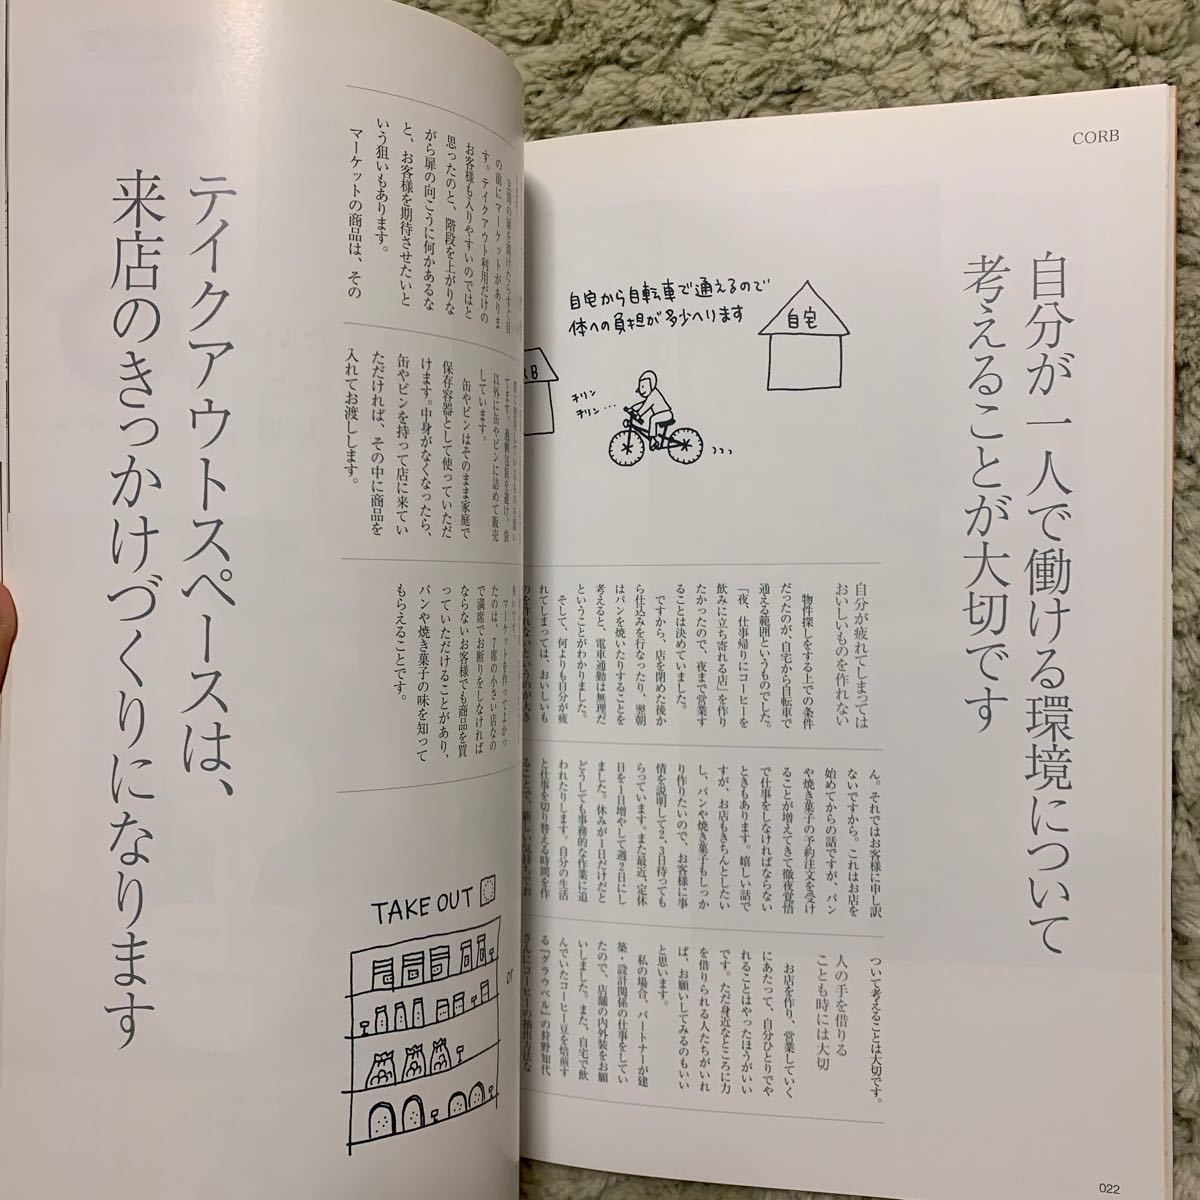 CORB
自分が一人で働ける環境について
考えることが大切です
自宅から自転車で通えるので
体への負担が多少へります
自宅
チリン
チリン…
自分が疲れてしまっては
おいしいものを作れない
物件探しをする上での条件
だったのが、自宅から自転車で
通える範囲というものでした。
「夜、仕事帰りにコーヒーを
飲みに立ち寄れる店」を作り
たかったので、夜まで営業す
ることは決めていました。
ですから、店を閉めた後か
ら仕込みを行なったり、翌朝
はパンを焼いたりすることを
考えると、電車通勤は無理だ
ということがわかりました。
そして、何よりも自分が疲
れてしまっては、おいしいも
のを作れないというのが大き
ん。それではお客様に申し訳
ないですから。これはお店を
始めてからの話ですが、パン
や焼き菓子の予約注文を受け
ることが増えてきて徹夜覚悟
で仕事をしなければならない
ときもあります。嬉しい話で
すが、お店もきちんとしたい
し、パンや焼き菓子もしっか
り作りたいので、お客様に事
情を説明して2、3日待っても
らっています。また最近、定休
日を1日増やして週2日にし
ました。休みが1日だけだと
どうしても事務的な作業に追
われたりします。自分の生活
と仕事を切り替える時間を作
ることで、新しい気持ちでお
ついて考えることは大切です。
人の手を借りる
ことも時には大切
お店を作り、営業していく
にあたって、自分ひとりでや
れることはやったほうがいい
です。ただ身近なところに力
を借りられる人たちがいれ
ば、お願いしてみるのもいい
と思います。
私の場合、パートナーが建
築・設計関係の仕事をしてい
たので、店舗の内外装をお願
いしました。また、自宅で飲
んでいたコーヒー豆を焙煎す
る『グラウベル』の狩野知代
さんにコーヒーの抽出方法な
022
玄関の扉を開けたらすぐ目
の前にマーケットがありま
す。テイクアウト利用だけの
お客様も入りやすいのではと
思ったのと、階段を上がりな
がら扉の向こうに何かあるな
と、お客様を期待させたいと
いう狙いもあります。
マーケットの商品は、その
てます。過剰包装を避け、袋
以外に缶やビンに詰めて販売
しています。
缶やビンはそのまま家庭で
保存容器として使っていただ
けます。中身がなくなったら、
缶やビンを持って店に来てい
ただければ、その中に商品を
入れてお渡しします。
マーケットを作ってよかっ
たのは、7席の小さい店なの
で満席でお断りをしなければ
ならないお客様でも商品を買
っていただけることがあり、
パンや焼き菓子の味を知って
もらえることです。
TAKE OUT
or
テイクアウトスペースは、
来店のきっかけづくりになります